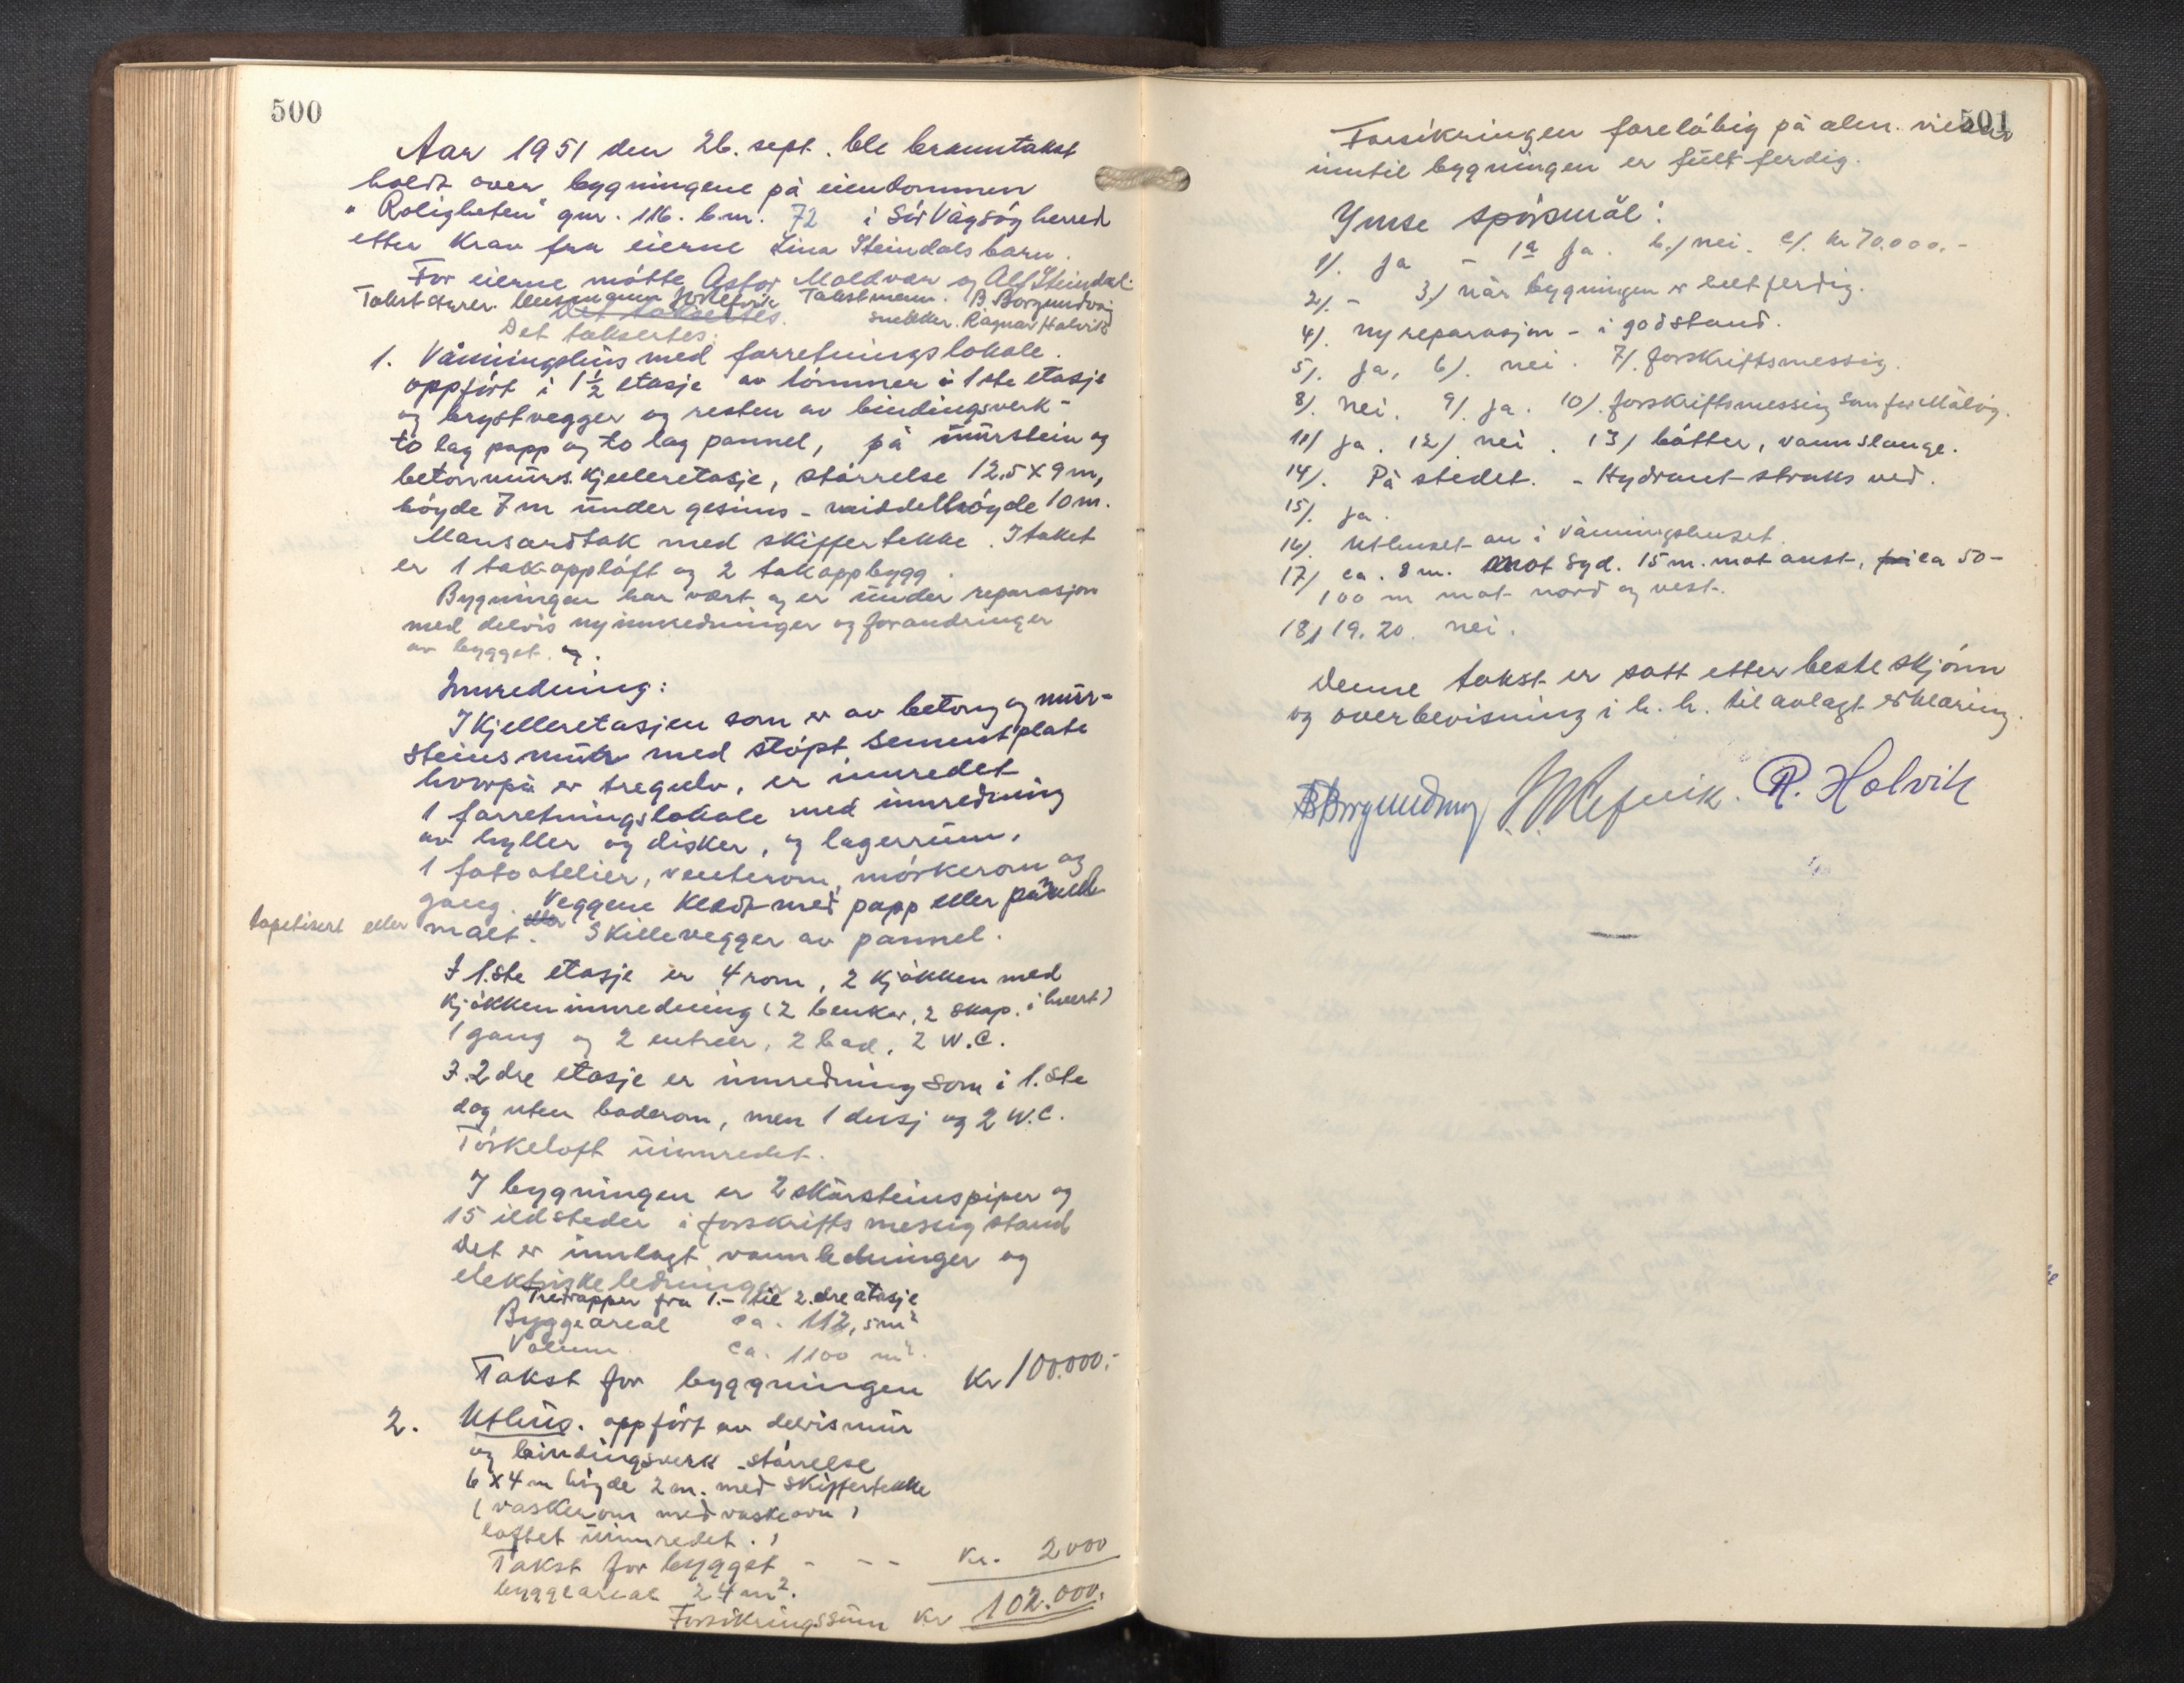 500
Aar 1951 den 26. sept. ble branntakst
holdt over bygningene på eiendommen
"Roligheten" gnr. 116. b.nr. 72 i Sör Vågsöy herred
etter krav fra eierne Lina Steindals barn.
For eierne mötte Astor Moldvær og Alf Steindal.
Takststyrer lensmann Refvik Takstmenn. B Borgundvåg
snekker. Ragnar Halvik
Det taksertes.
Det taksertes:
1. Våningshus med forretningslokale.
oppfört i 1 1/2 etasje av tömmer i 1ste etasje
og brystvegger og resten av bindingsverk-
to lag papp og to lag pannel, på murstein og
betonmurs. kjelleretasje, störrelse 12.5 x 9 m,
höyde 7 m under gesims - middelhöyde 10 m.
Mansardtak med skiffertekke. I taket
er 1 takoppløft og 2 takoppbygg.
Bygningen har vært og er under reparasjon
med delvis ny innredninger og forandringer
av bygget. og.
Innredning:
I Kjelleretasjen som er av betong og mur-
steins mur med stöpt sementplate
hvorpå er tregulv, er innredet
1 forretningslokale med innredning
av hyller og disker, og lagerrum,
1 fotoatelier, venterom, mörkerom og
gang. Veggene kledt med papp eller pannel
tapetisert eller malt. Skillevegger av pannel.
I 1.ste etasje er 4 rom, 2 kjökken med
kjökkeninnredning (2 benker, 2 skap. i hvert)
1 gang og 2 entreer, 2 bad, 2 W.C.
I. 2dre etasje er innredning som i 1.ste
dog uten baderom, men 1 dusj og 2 W.C.
Törkeloft uinnredet.
I bygningen er 2 skorsteinspiper og
15 ildsteder i forskriftsmessig stand
Det er innlagt vannledninger og
elektriske ledninger
Tretrapper fra 1.- til 2.dre etasje
Byggeareal ca. 112,5 m2
Volum ca. 1100 m2.
Takst for byggningen Kr 100.000.-
2. Uthus. oppfört av delvis mur
og bindingsverk störrelse
6 x 4 m höyde 2 m. med skiffertekke
(vaskerom med vaskeovn,
loftet uinnredet.)
Takst for bygget - - - Kr. 2000
byggeareal 24 m2.
Forsikringssum Kr 102.000.
501
Forsikringen forelöbig på alm. vilkår
inntil bygningen er fullt ferdig.
Ymse spörsmål:
1). Ja - 1a Ja. b.) nei. c). kr 70.000.-
2). - 3.) når bygningen er helt ferdig.
4). ny reparasjon - i god stand.
5). Ja, 6). nei. 7). forskriftsmessig.
8). nei. 9). Ja. 10). forskriftsmessig som for Målöy.
11) Ja. 12) nei. 13) bötter, vannslange.
14). På stedet. - Hydrant straks ved.
15). Ja.
16). Uthuset av i våningshuset.
17) ca. 8 m. mot syd. 15 m. mot aust, ca 50-
100 m mot nord og vest.
18, 19. 20. nei.
Denne takst er satt etter beste skjönn
og overbevisning i h. h. til avlagt erklæring.
B Borgundvåg Refvik. R. Halvik